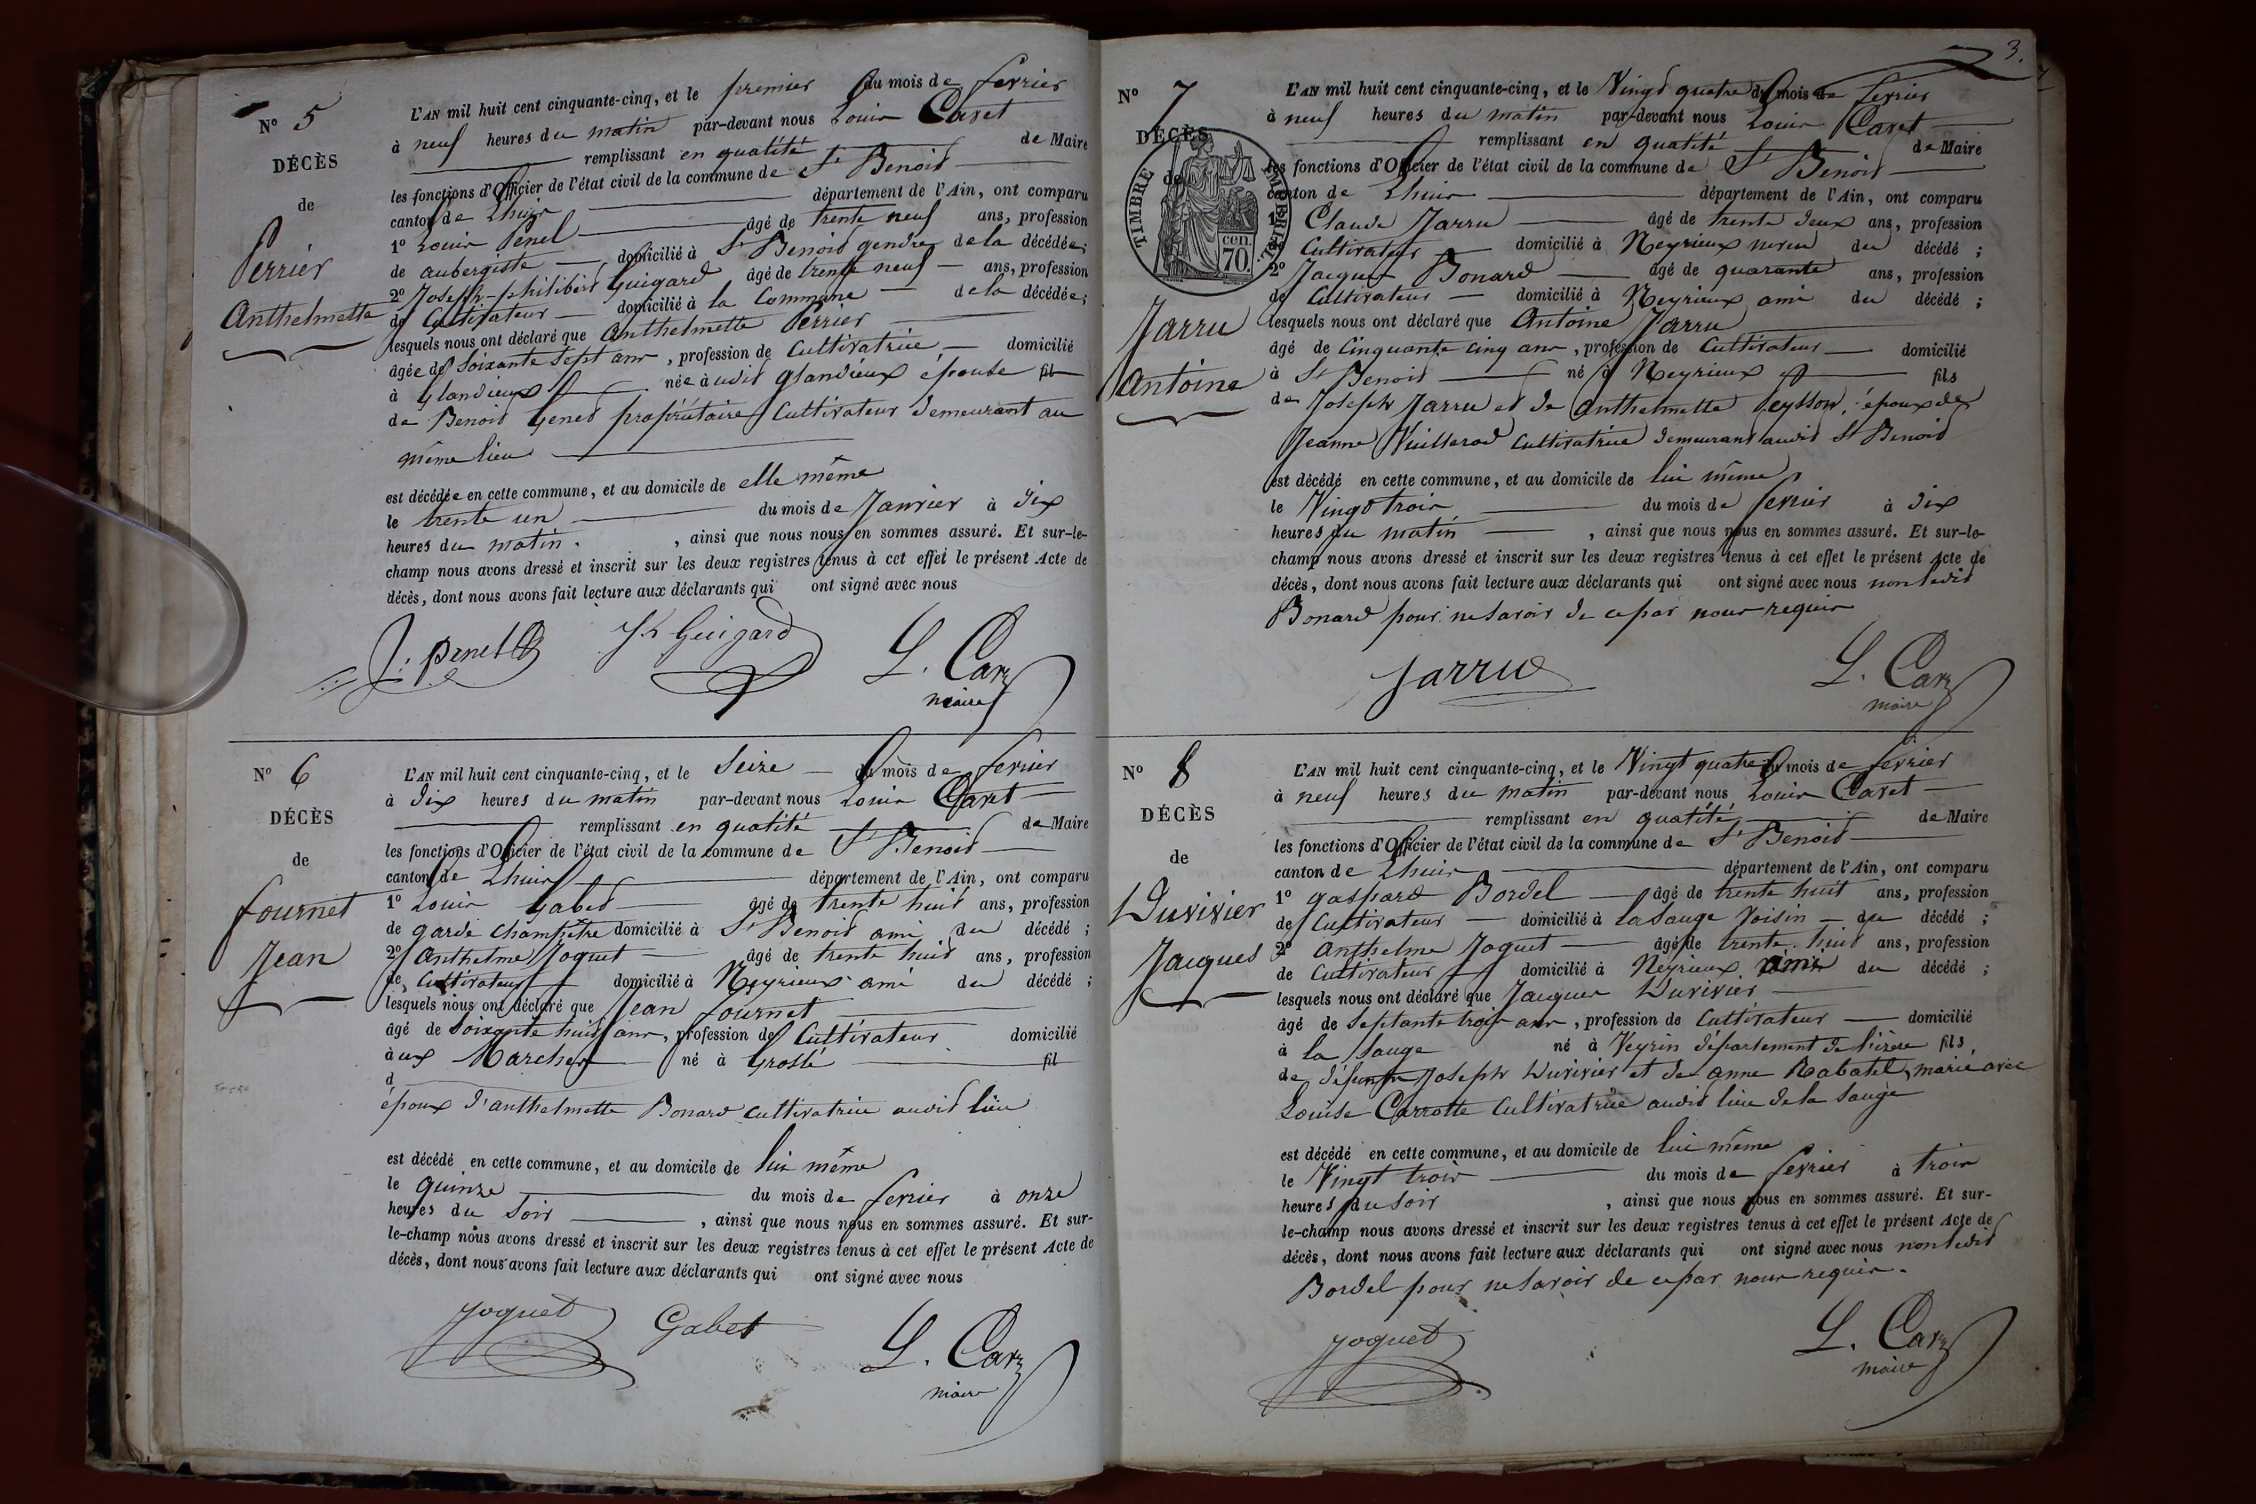 3.
N° 5
DÉCÈS
de
Perrier
Anthelmette
L'AN mil huit cent cinquante-cinq, et le premier du mois de fevrier
à neuf heures du matin par-devant nous Louis Caret
remplissant en qualité de Maire
les fonctions d'Officier de l'état civil de la commune de St Benoit
canton de Lhuis département de l'Ain, ont comparu
1° Louis Penel âgé de trente neuf ans, profession
de aubergiste domicilié à St Benoit gendre de la décédée;
2° Joseph-philibert Guigard âgé de trente neuf ans, profession
de Cultivateur domicilié à la Commune de la décédée;
lesquels nous ont déclaré que Anthelmette Perrier
âgée de soixante sept ans, profession de Cultivatrice domicilié
à Glandieux née audit Glandieux épouse fil
de Benoit Genet propriétaire Cultivateur demeurant au
même lieu
est décédée en cette commune, et au domicile de elle même
le trente un du mois de Janvier à dix
heures du matin, ainsi que nous nous en sommes assuré. Et sur-le-
champ nous avons dressé et inscrit sur les deux registres tenus à cet effet le présent Acte de
décès, dont nous avons fait lecture aux déclarants qui ont signé avec nous
penel Guigard L. Car
maire
N° 6
DÉCÈS
de
fournet
Jean
L'AN mil huit cent cinquante-cinq, et le Seize du mois de fevrier
à dix heures du matin par-devant nous Louis Caret
remplissant en qualité de Maire
les fonctions d'Officier de l'état civil de la commune de St Benoit
canton de Lhuis département de l'Ain, ont comparu
1° Louis Gabet âgé de trente huit ans, profession
de garde champêtre domicilié à St Benoit ami du décédé;
2° Anthelme Joguet âgé de trente huit ans, profession
de Cultivateur domicilié à Neyrieux ami du décédé;
lesquels nous ont déclaré que Jean fournet
âgé de soixante huit ans, profession de Cultivateur domicilié
aux Marches né à Groslé fil
d
époux d'anthelmette Bonard cultivatrice audit lieu
est décédé en cette commune, et au domicile de lui même
le quinze du mois de fevrier à onze
heures du soir, ainsi que nous nous en sommes assuré. Et sur-
le-champ nous avons dressé et inscrit sur les deux registres tenus à cet effet le présent Acte de
décès, dont nous avons fait lecture aux déclarants qui ont signé avec nous
Joguet Gabet L. Car
maire
N° 7
DÉCÈS
de
TIMBRE IMPERIAL
cen.
70.
Jarru
Antoine
L'AN mil huit cent cinquante-cinq, et le Vingt quatre du mois de fevrier
à neuf heures du matin par-devant nous Louis Caret
remplissant en qualité de Maire
les fonctions d'Officier de l'état civil de la commune de St Benoit
canton de Lhuis département de l'Ain, ont comparu
1° Claude Jarru âgé de trente deux ans, profession
de Cultivateur domicilié à Neyrieux neveu du décédé;
2° Jacques Bonard âgé de quarante ans, profession
de Cultivateur domicilié à Neyrieux ami du décédé;
lesquels nous ont déclaré que Antoine Jarru
âgé de cinquante cinq ans, profession de Cultivateur domicilié
à St Benoit né à Neyrieux fils
de Joseph Jarru et de Anthelmette Peysson, époux de
Jeanne Vuillerod cultivatrice demeurant audit St Benoit
est décédé en cette commune, et au domicile de lui même
le Vingt trois du mois de fevrier à dix
heures du matin, ainsi que nous nous en sommes assuré. Et sur-le-
champ nous avons dressé et inscrit sur les deux registres tenus à cet effet le présent Acte de
décès, dont nous avons fait lecture aux déclarants qui ont signé avec nous non ledit
Bonard pour ne savoir de ce par nous requis
Jarru L. Car
maire
N° 8
DÉCÈS
de
Duvivier
Jacques
L'AN mil huit cent cinquante-cinq, et le Vingt quatre du mois de fevrier
à neuf heures du matin par-devant nous Louis Caret
remplissant en qualité de Maire
les fonctions d'Officier de l'état civil de la commune de St Benoit
canton de Lhuis département de l'Ain, ont comparu
1° gaspard Bordel âgé de trente huit ans, profession
de Cultivateur domicilié à la Sauge Voisin du décédé;
2° Anthelme Joguet âgé de trente huit ans, profession
de Cultivateur domicilié à Neyrieux ami du décédé;
lesquels nous ont déclaré que Jacques Duvivier
âgé de septante trois ans, profession de Cultivateur domicilié
à la Sauge né à Veyrin département de l'isère fils
de défunt Joseph Duvivier et de anne Rabatel, marié avec
Louise Carrotte Cultivatrice audit lieu de la Sauge
est décédé en cette commune, et au domicile de lui même
le Vingt trois du mois de fevrier à trois
heures du soir, ainsi que nous nous en sommes assuré. Et sur-
le-champ nous avons dressé et inscrit sur les deux registres tenus à cet effet le présent Acte de
décès, dont nous avons fait lecture aux déclarants qui ont signé avec nous non ledit
Bordel pour ne savoir de ce par nous requis.
Joguet L. Car
maire